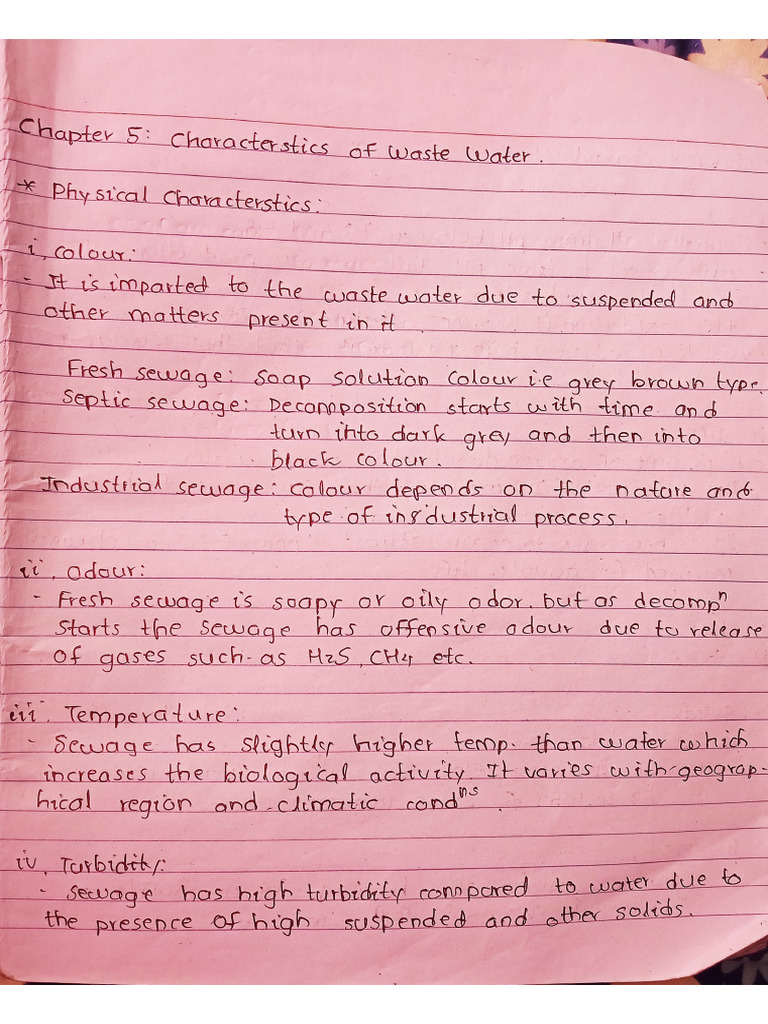 Chapter 5: Characterstics of Waste Water.
* Physical Characterstics:
i, Colour:
- It is imparted to the waste water due to suspended and
other matters present in it.
Fresh sewage: Soap solution Colour i.e grey brown type.
Septic sewage: Decomposition starts with time and
turn into dark grey and then into
black colour.
Industrial sewage: Colour depends on the nature and
type of industrial process.
ii, Odour:
- Fresh sewage is soapy or oily odor. but as decompⁿ
starts the sewage has offensive odour due to release
of gases such as H2S, CH4 etc.
iii. Temperature:
- Sewage has slightly higher temp. than water which
increases the biological activity. It varies with geograp-
hical region and climatic condⁿˢ.
iv, Turbidity:
- Sewage has high turbidity compared to water due to
the presence of high suspended and other solids.